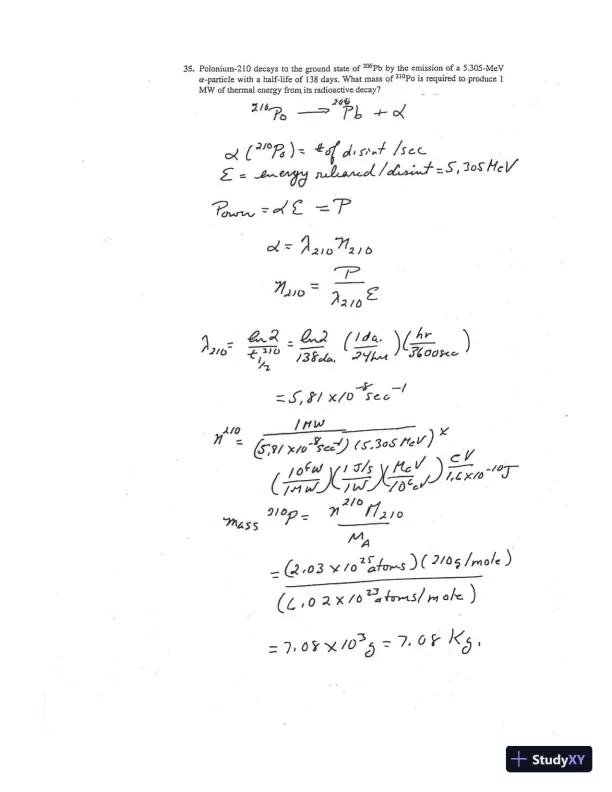 35. Polonium-210 decays to the ground state of ²⁰⁶Pb by the emission of a 5.305-MeV
α-particle with a half-life of 138 days. What mass of ²¹⁰Po is required to produce 1
MW of thermal energy from its radioactive decay?
²¹⁰Po → ²⁰⁶Pb + α
α (²¹⁰Po) = # of disint /sec
E = energy released/disint = 5,305 MeV
Power = αE = P
α = λ₂₁₀ n₂₁₀
n₂₁₀ = P / λ₂₁₀ E
λ₂₁₀ = ln2 / t₁/₂²¹⁰ = ln2 / 138da. (1da. / 24hr) (hr / 3600sec)
= 5,81 x10⁻⁸ sec⁻¹
n²¹⁰ = 1MW / (5,81 x10⁻⁸ sec⁻¹) (5.305 MeV) x
(10⁶W / 1MW) (1 J/s / 1W) (MeV / 10⁶eV) eV / 1,6 x10⁻¹⁰J
mass ²¹⁰P = n²¹⁰ M₂₁₀ / M_A
= (2.03 x10²⁵ atoms) (210g/mole)
(6.02 x10²³ atoms/mole)
= 7.08 x10³ g = 7.08 Kg.
StudyXY